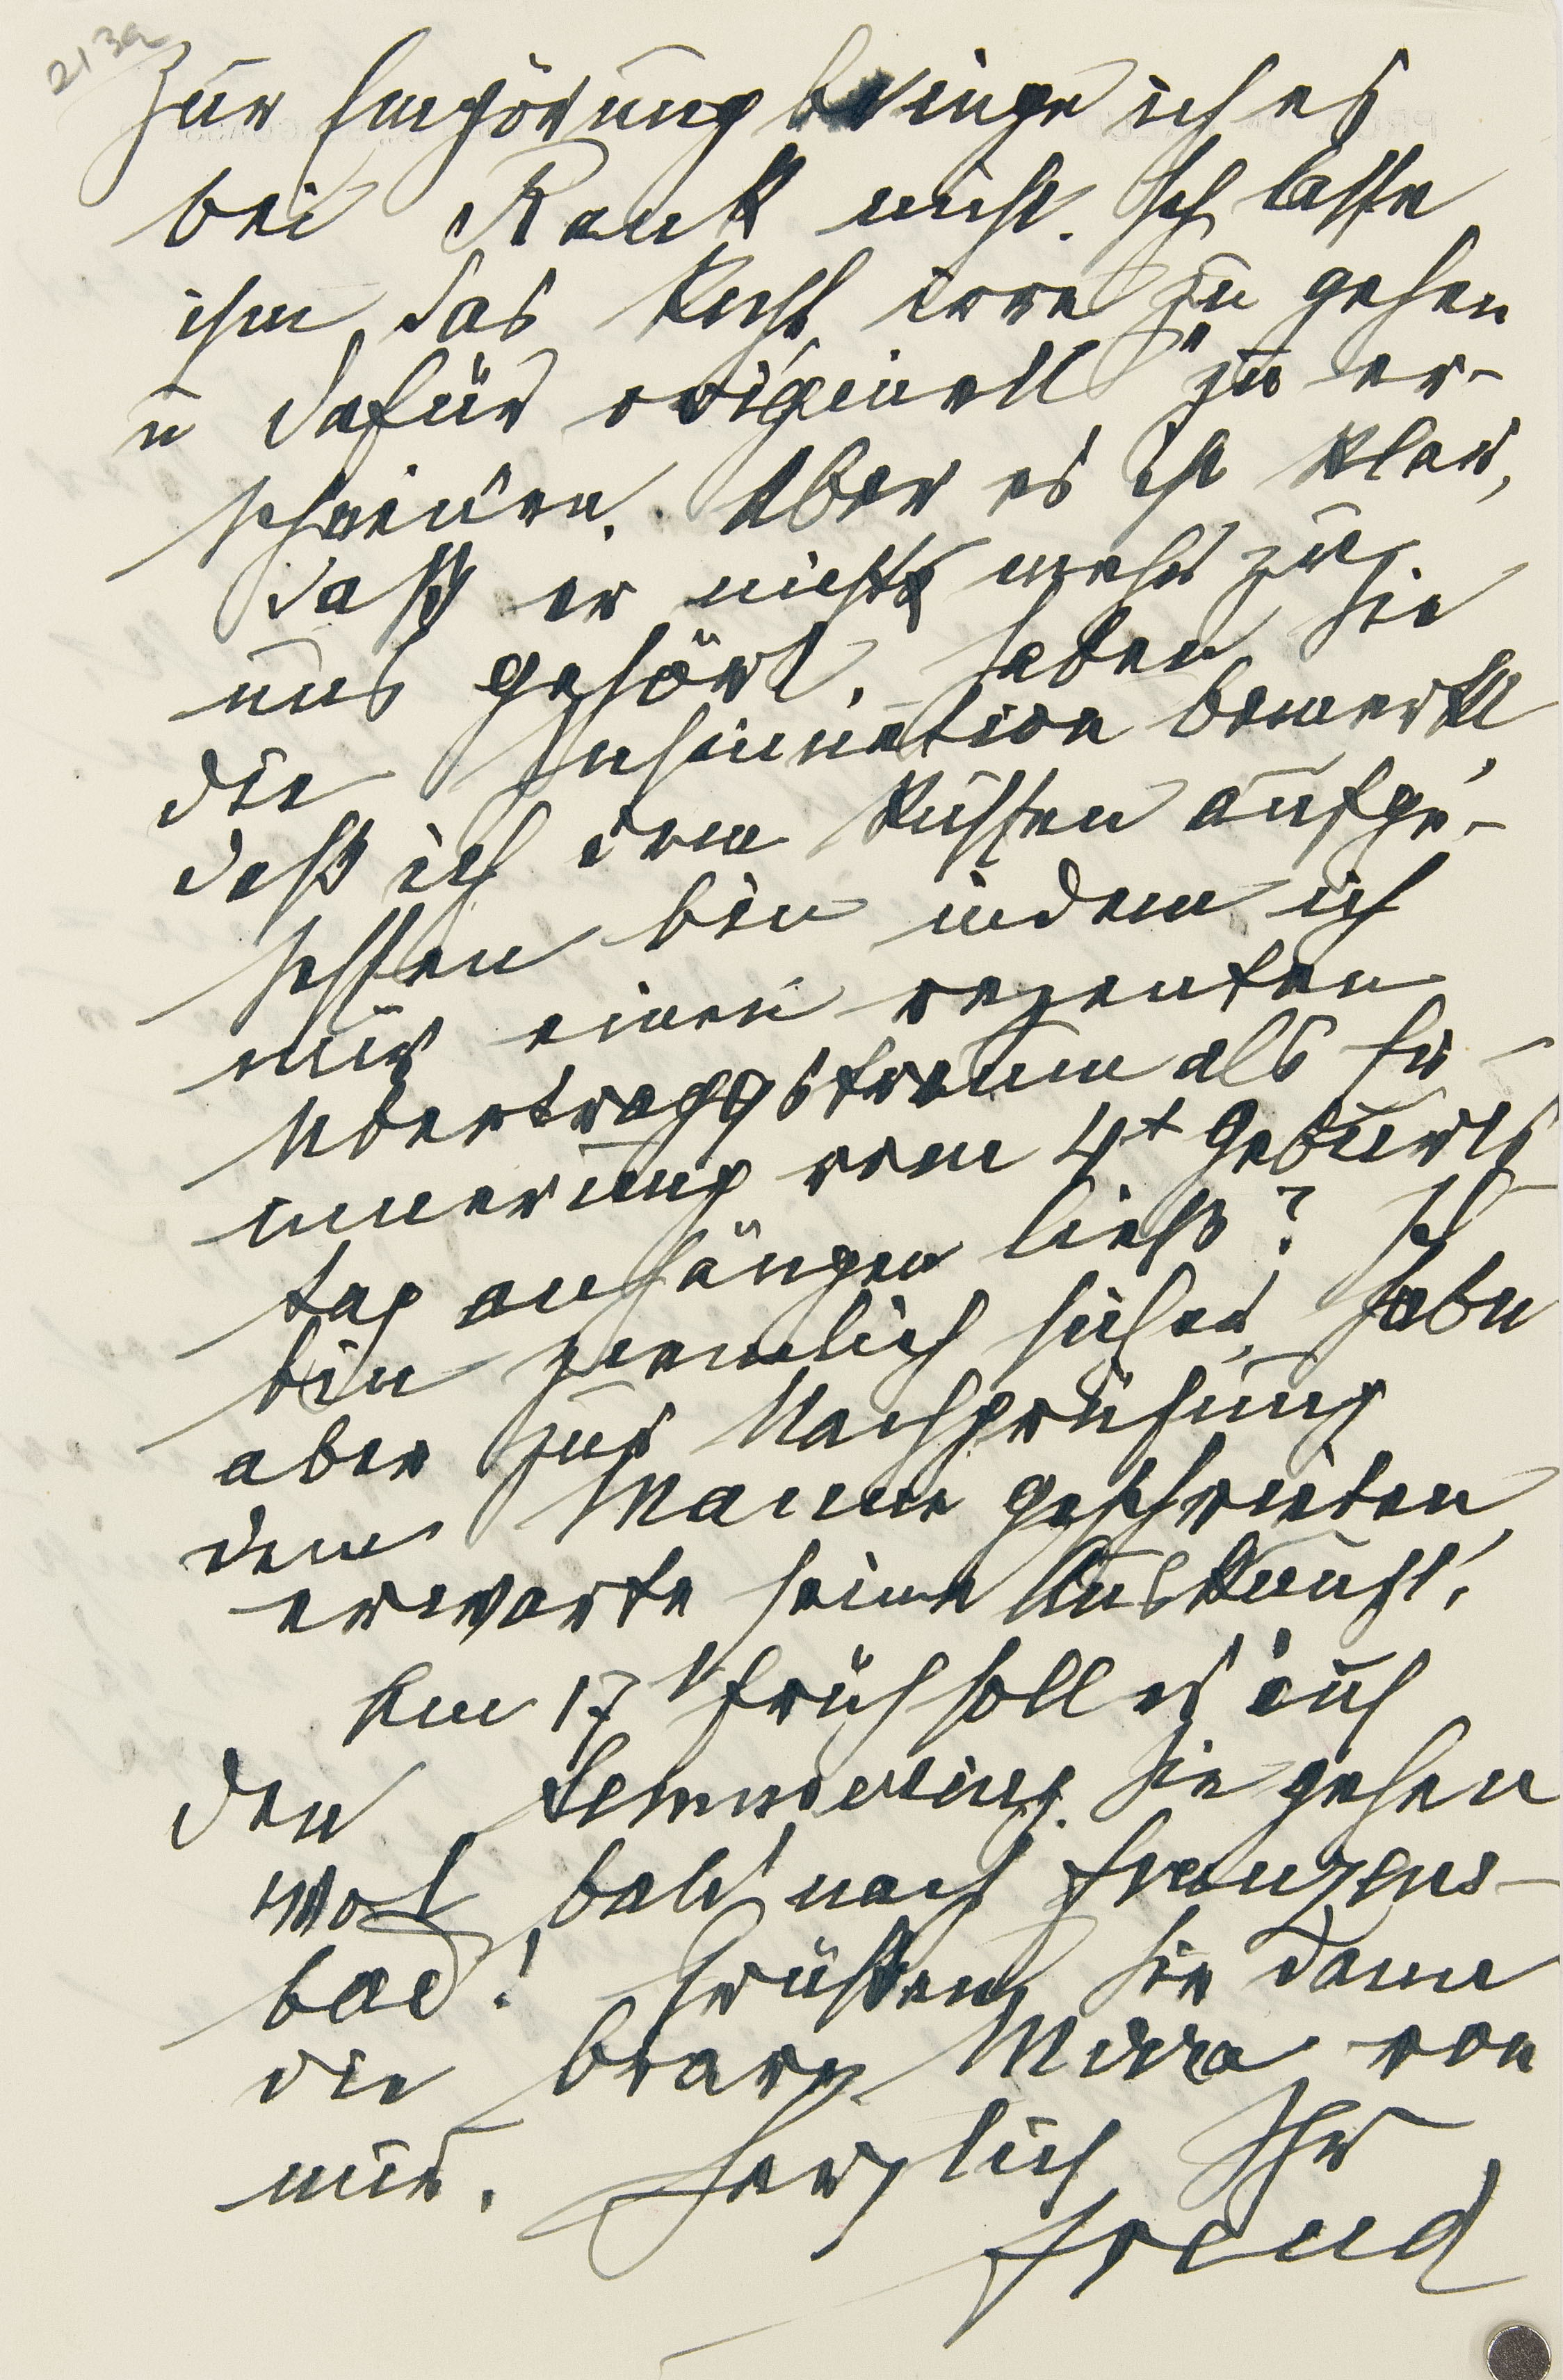 213a
Zur Empörung bringe ich es
bei Rank nicht. Ich lasse
ihm das Recht irre zu gehen
u dafür „originell“ zu er-
scheinen. Aber es ist klar,
daß er nicht mehr zu
uns gehört. Haben Sie
die Insinuation bemerkt,
daß ich dem Russen aufge-
sessen bin indem ich
mir einen rezenten
Übertraggstraum als Er-
innerung vom 4t Geburts-
tag anhängen ließ? Ich
bin ziemlich sicher, habe
aber zur Nachprüfung
dem Manne geschrieben,
erwarte seine Auskunft.
Am 17t früh soll es auf
den Semmering. Sie gehen
wol bald nach Franzens-
bad! Grüßen Sie dann
die brave Mirra von
mir. Herzlich Ihr
Freud